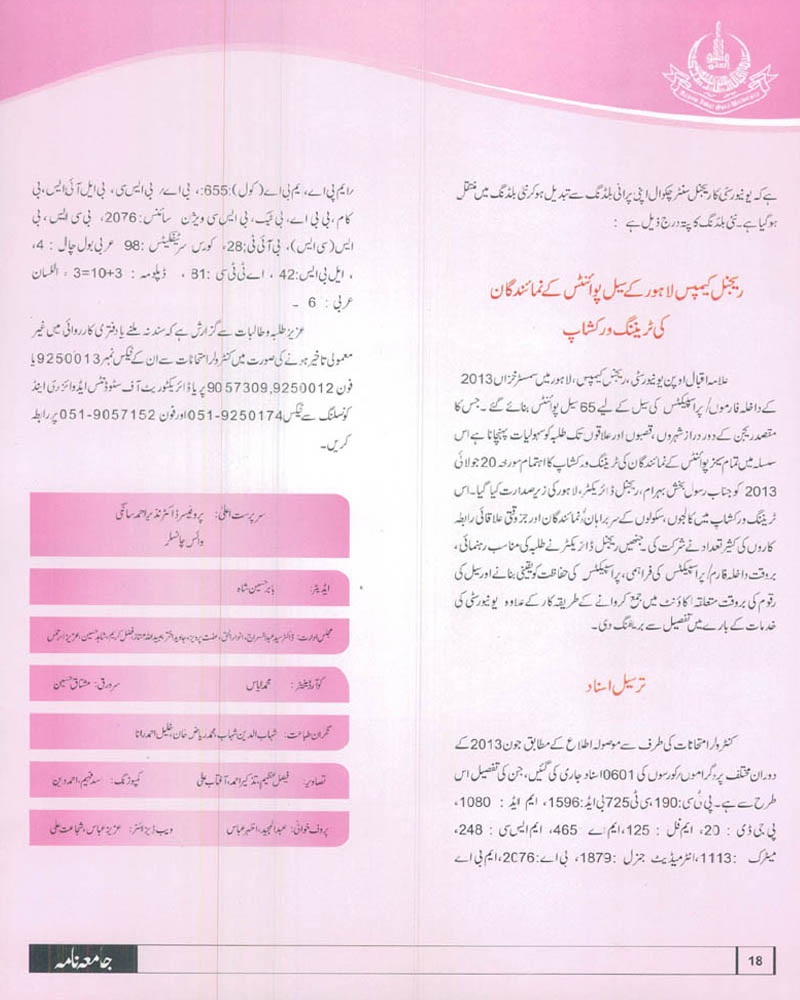 ہے کہ یونیورسٹی کا ریجنل سنٹر چکوال اپنی پرانی بلڈنگ سے تبدیل ہو کر نئی بلڈنگ میں منتقل
ہو گیا ہے۔ نئی بلڈنگ کا پتہ درج ذیل ہے :
ریجنل کیمپس لاہور کے سیل پوائنٹس کے نمائندگان
کی ٹریننگ ورکشاپ
علامہ اقبال اوپن یونیورسٹی، ریجنل کیمپس، لاہور میں سمسٹر خزاں 2013
کے داخلہ فارموں/ پراسپیکٹس کی سیل کے لیے 65 سیل پوائنٹس بنائے گئے۔ جس کا
مقصد ریجن کے دور دراز شہروں، قصبوں اور علاقوں تک طلبہ کو سہولیات پہنچانا ہے اس
سلسلہ میں تمام سیلز پوائنٹس کے نمائندگان کی ٹریننگ ورکشاپ کا اہتمام مورخہ 20 جولائی
2013 کو جناب رسول بخش بہرام، ریجنل ڈائریکٹر، لاہور کی زیر صدارت کیا گیا۔ اس
ٹریننگ ورکشاپ میں کالجوں، سکولوں کے سربراہان/ نمائندگان اور جزوقتی علاقائی رابطہ
کاروں کی کثیر تعداد نے شرکت کی۔ جنھیں ریجنل ڈائریکٹر نے طلبہ کی مناسب رہنمائی،
بروقت داخلہ فارم/ پراسپیکٹس کی فراہمی، پراسپیکٹس کی حفاظت کو یقینی بنانے اور سیل کی
رقوم کی بروقت متعلقہ اکاؤنٹ میں جمع کروانے کے طریقہ کار کے علاوہ یونیورسٹی کی
خدمات کے بارے میں تفصیل سے بریفنگ دی۔
ترسیل اسناد
کنٹرولر امتحانات کی طرف سے موصولہ اطلاع کے مطابق جون 2013 کے
دوران مختلف پروگراموں/کورسوں کی 0601 اسناد جاری کی گئیں، جن کی تفصیل اس
طرح سے ہے۔ پی ٹی سی:190، سی ٹی 725 بی ایڈ:1596، ایم ایڈ : 1080،
پی جی ڈی : 20، ایم فل : 125، ایم اے 465، ایم ایس سی : 248،
میٹرک : 1113، انٹرمیڈیٹ جنرل :1879، بی اے:2076، ایم بی اے
/ایم پی اے، یم بی اے( کول ):655، بی اے/ بی ایس سی، بی ایل آئی ایس، بی
کام، بی بی اے، بی ٹیک، بی ایس سی ویژن سائنس:2076، بی سی ایس، بی
ایس (سی ایس)، پی آئی ٹی:28، کورس سرٹیفکیٹس :98 عربی بول چال : 4،
، ایل بی ایس:42 ، اے ٹی ٹی سی :81 ، ڈپلومہ : 3+10=3 ، اللسان
عربی : 6 ۔
عزیز طلبہ و طالبات سے گزارش ہے کہ سند نہ ملنے یا دفتری کارروائی میں غیر
معمولی تاخیر ہونے کی صورت میں کنٹرولر امتحانات سے ان کے فیکس نمبر 9250013 یا
فون 9057309,9250012 پر یا ڈائریکٹوریٹ آف سٹوڈنٹس ایڈوائزری اینڈ
کونسلنگ سے فیکس 051-9250174 اور فون 051-9057152 پر رابطہ
کریں۔
سرپرست اعلیٰ: پروفیسر ڈاکٹر نذیر احمد سانگی
وائس چانسلر
ایڈیٹر: بابر حسین شاہ
مجلس ادارت: ڈاکٹر سید عبدالسراج، انوار الحق، عفت پرویز، جاوید اختر، عبیداللہ ممتاز، فضل کریم، شاہد حسین، عزیز الرحمٰن
کوآرڈینیٹر: محمد الیاس سرورق: مشتاق حسین
نگران طباعت: شہاب الدین شہاب، محمد ریاض خان، خلیل احمد رانا
تصاویر: فیصل عظیم، تذکیر احمد، آفتاب علی کمپوزنگ: سید فہیم، احمد دین
پروف خوانی: عبدالمجید، اظہر عباس ویب ڈیزائنر: عزیز عباس، شجاعت علی
جامعہ نامہ
18